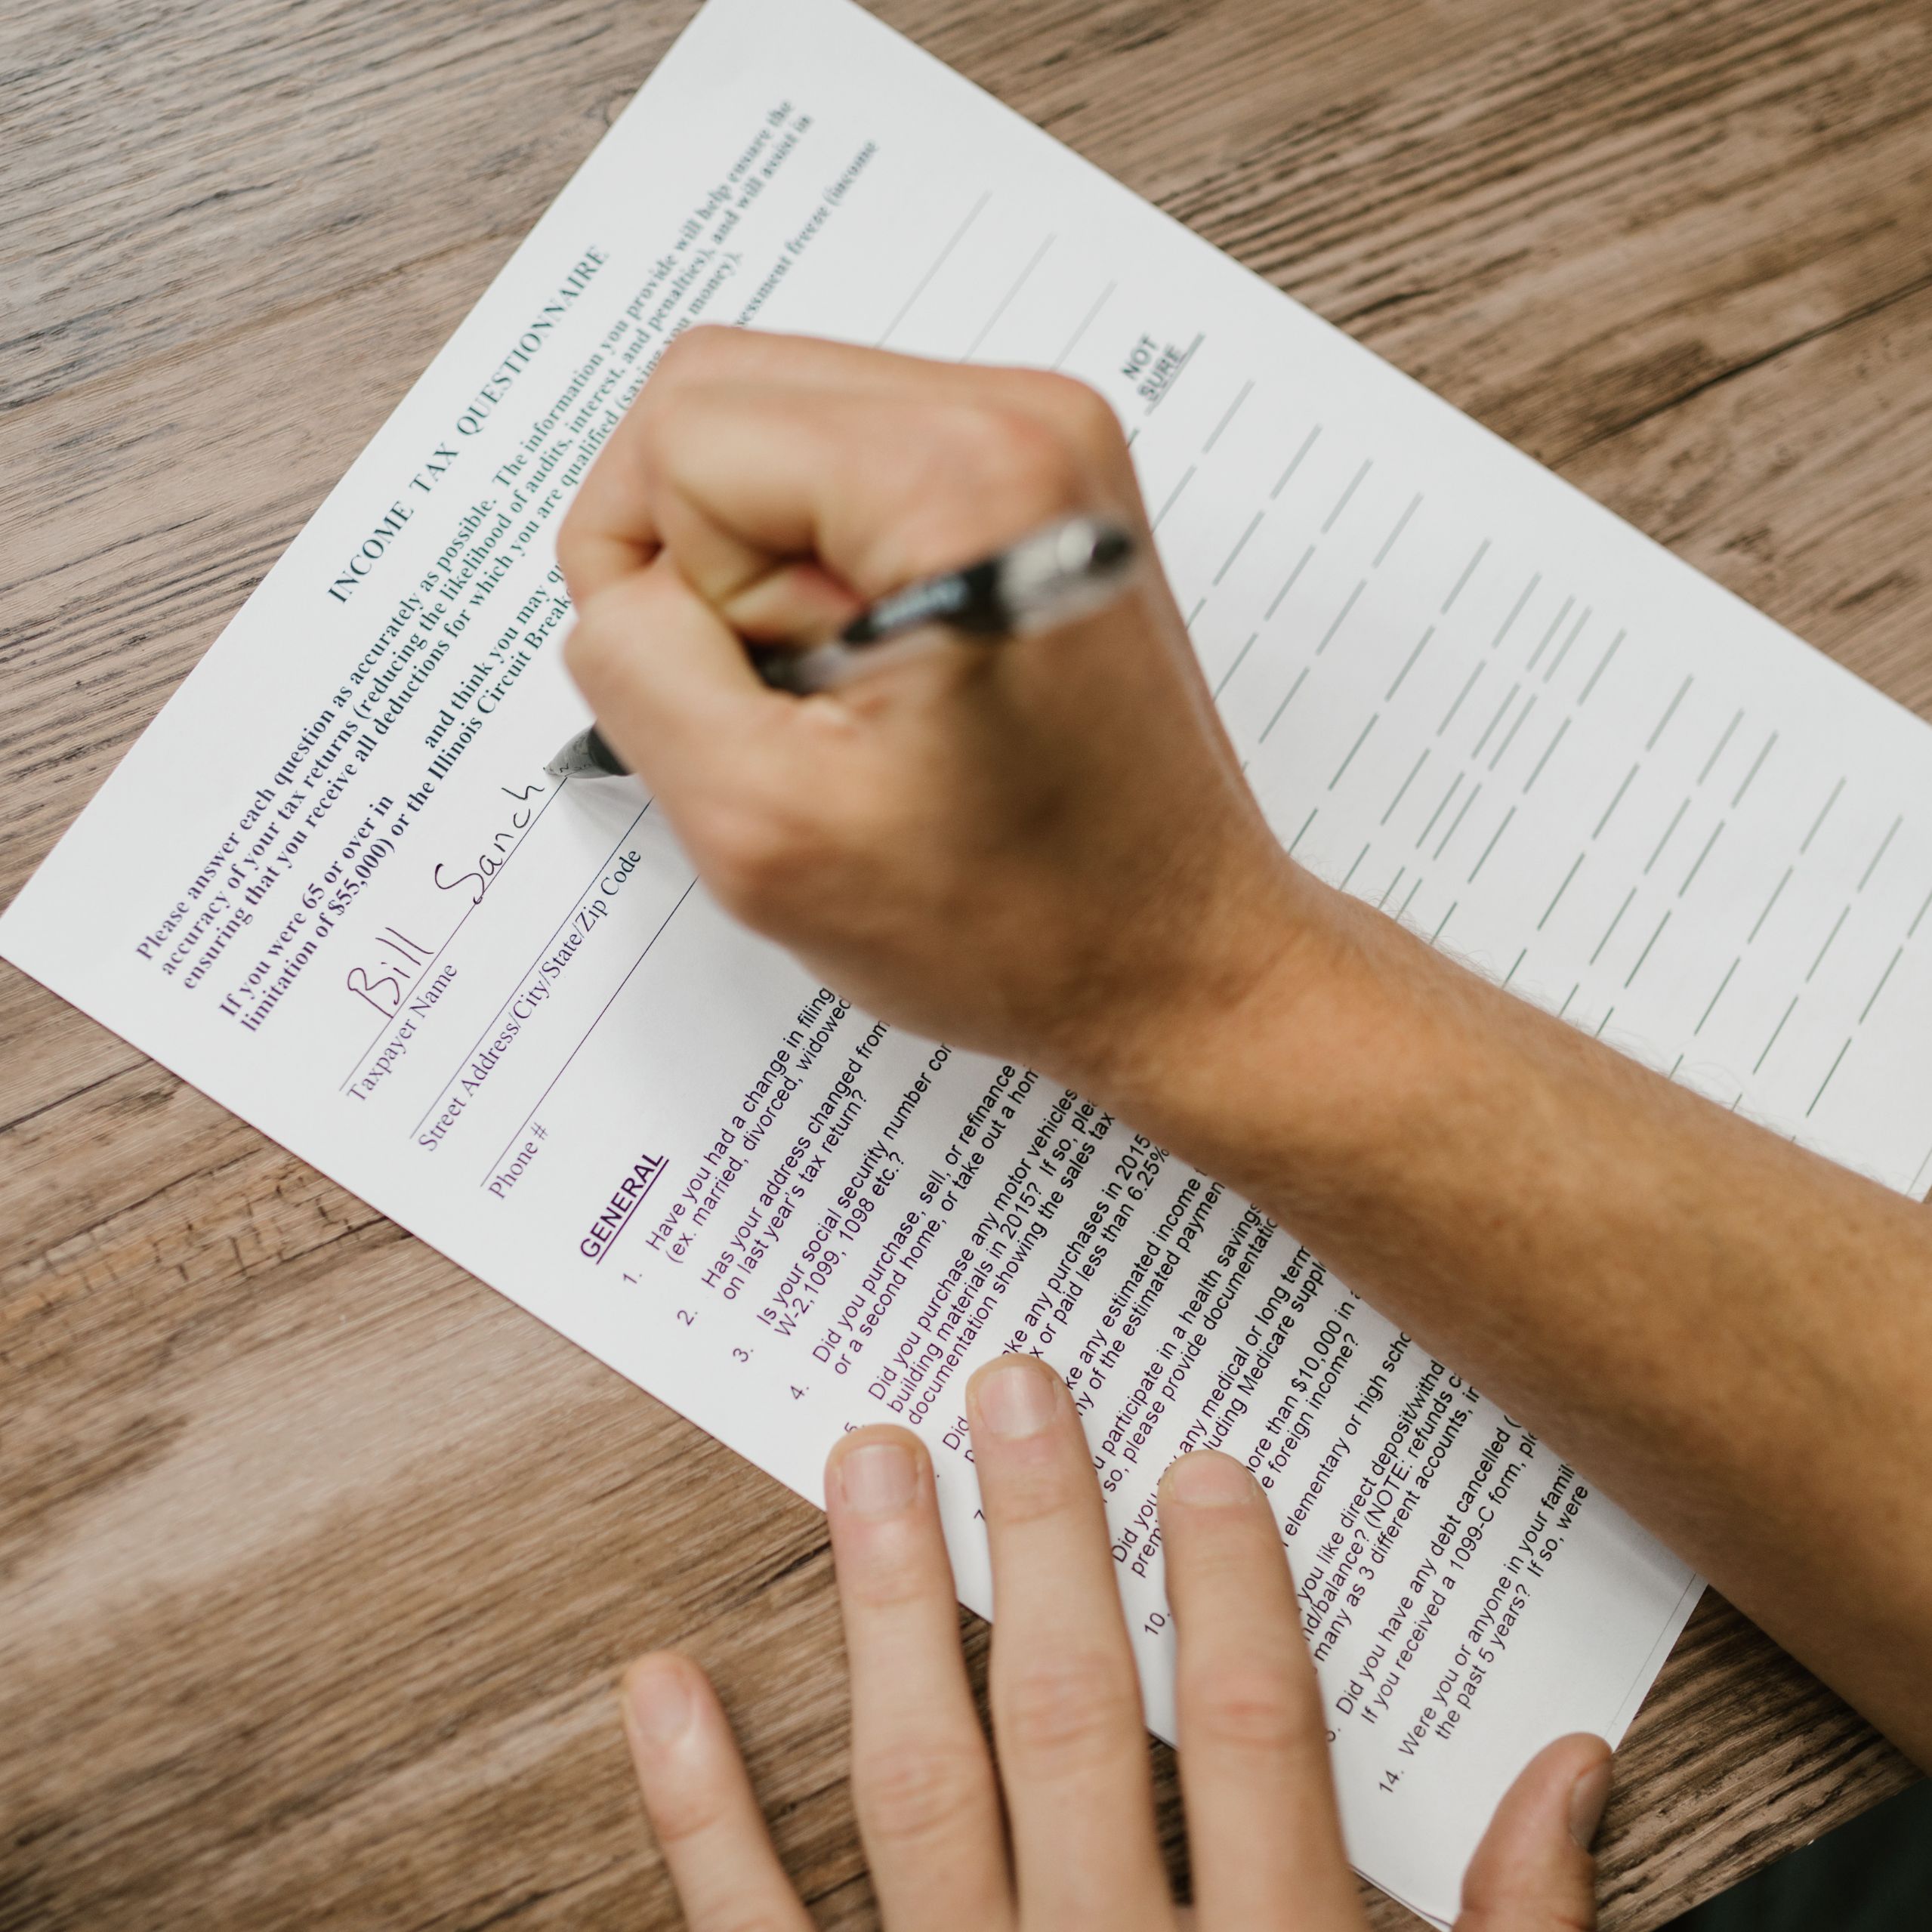 INCOME TAX QUESTIONNAIRE
Please answer each question as accurately as possible. The information you provide will help ensure the
accuracy of your tax returns (reducing the likelihood of audits, interest, and penalties), and will assist in
ensuring that you receive all deductions for which you are qualified (saving you money).
If you were 65 or over in and think you may freeze (income
limitation of $55,000) or the Illinois Circuit
Bill Sanch
Taxpayer Name
Street Address/City/State/Zip Code
Phone #
NOT
SURE
GENERAL
1. Have you had a change in filing
(ex. married, divorced, widowed
2. Has your address changed from
on last year's tax return?
3. Is your social security number
W-2, 1099, 1098 etc.?
4. Did you purchase, sell, or refinance
or a second home, or take out a
5. Did you purchase any motor vehicles
building materials in 2015? If so,
documentation showing the sales tax
Did any purchases in 2015
or paid less than 6.25%
7. any estimated income
of the estimated
participate in a health savings
so, please provide
10. Did you any medical or long term
Medicare
more than $10,000 in
foreign income?
elementary or high
you like direct
many as 3 different accounts,
(NOTE: refunds
Did you have any debt cancelled
If you received a 1099-C form,
14. Were you or anyone in your
the past 5 years? If so, were